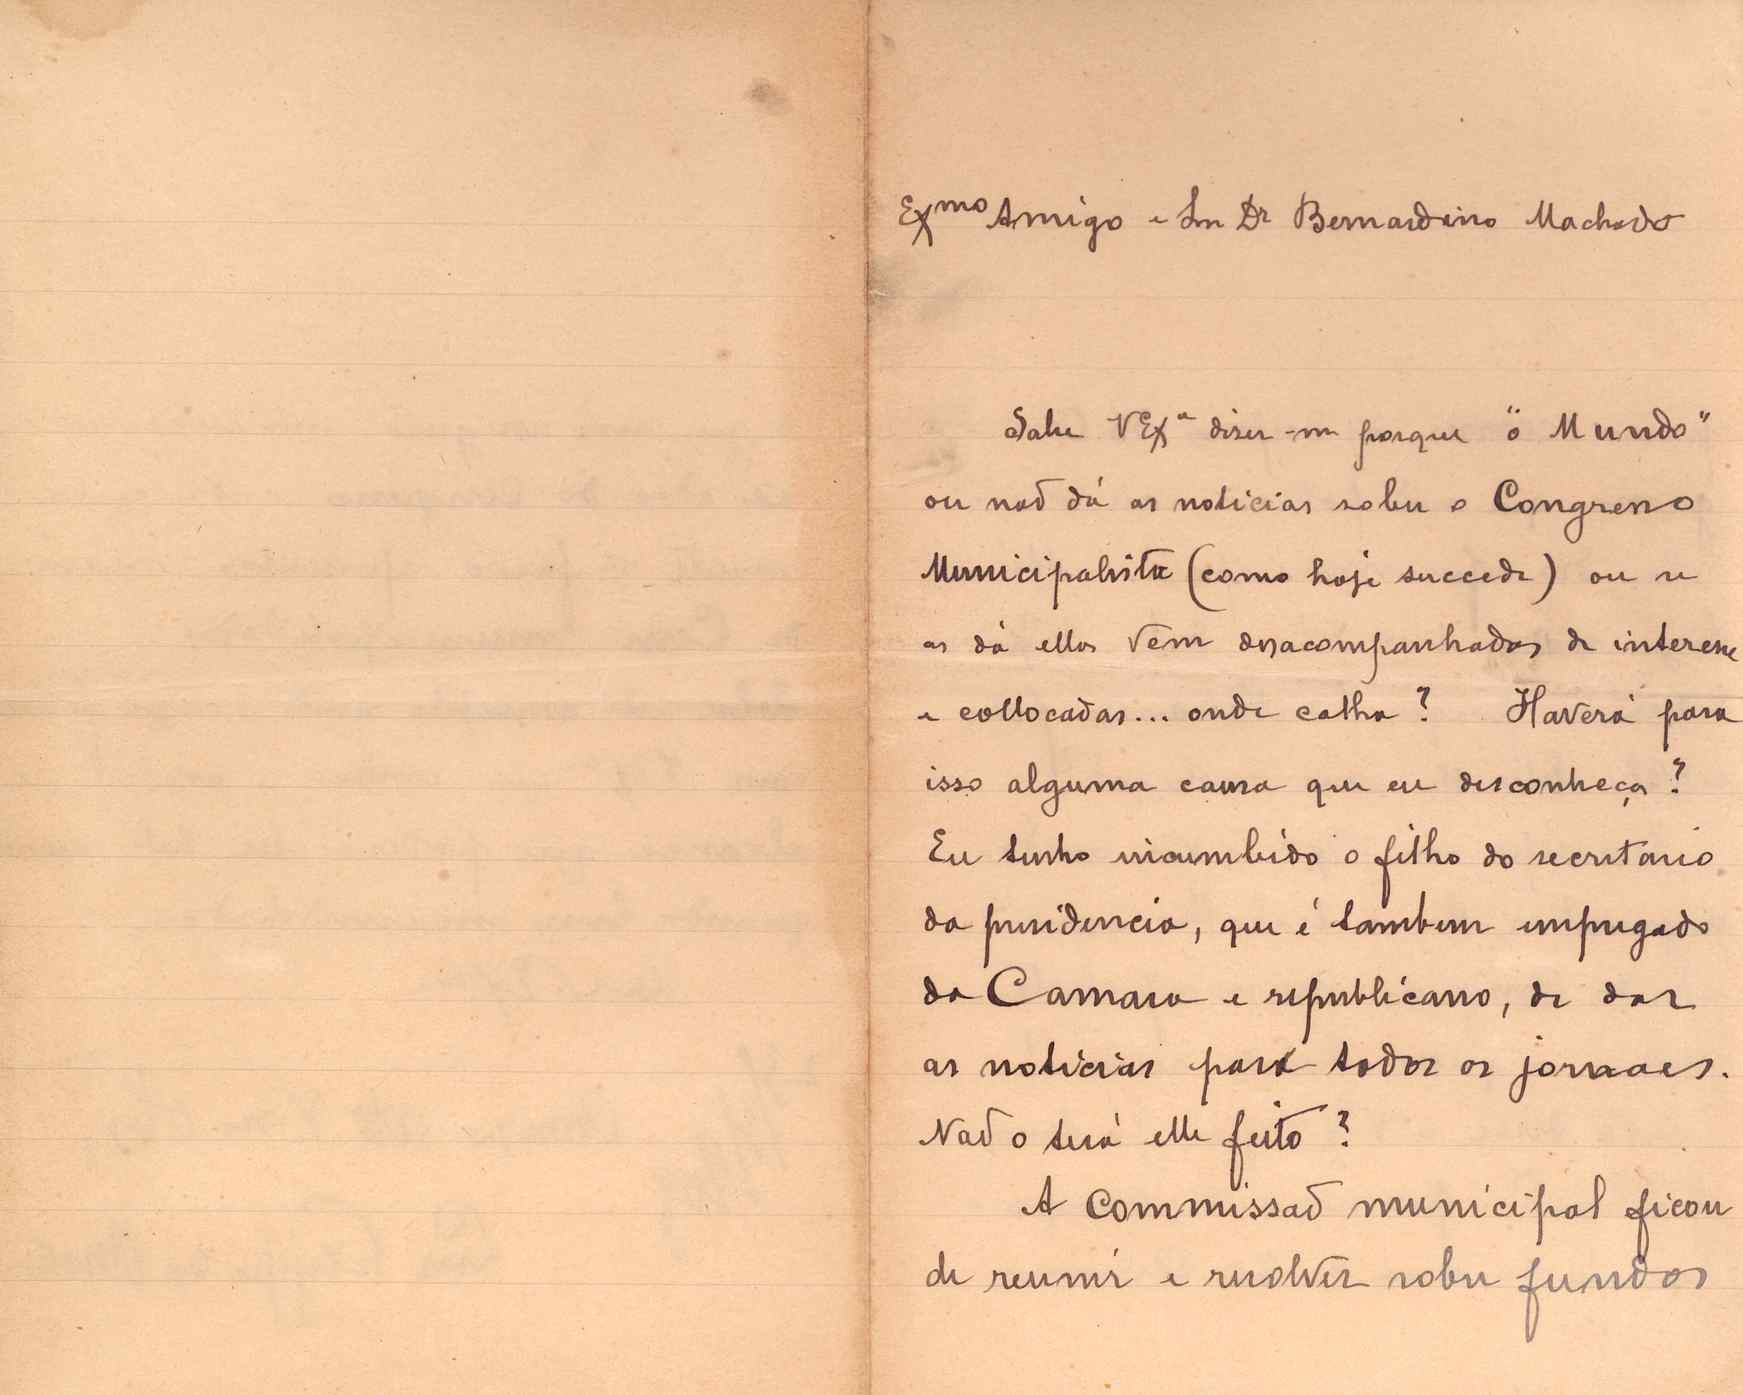 Exmo Amigo e Snr Dr Bernardino Machado
Sabe V Exa dizer-me porque "o Mundo"
ou naõ dá as noticias sobre o Congresso
Municipalista (como hoje succede) ou se
as dá ellas vem desacompanhadas de interesse
e collocadas... onde calha? Haverá para
isso alguma causa que eu desconheça?
Eu tenho incumbido o filho do secretario
da presidencia, que é tambem empregado
da Camara e republicano, de dar
as noticias para todos os jornaes.
Naõ o terá elle feito?
A Commissaõ municipal ficou
de reunir e resolver sobre fundos